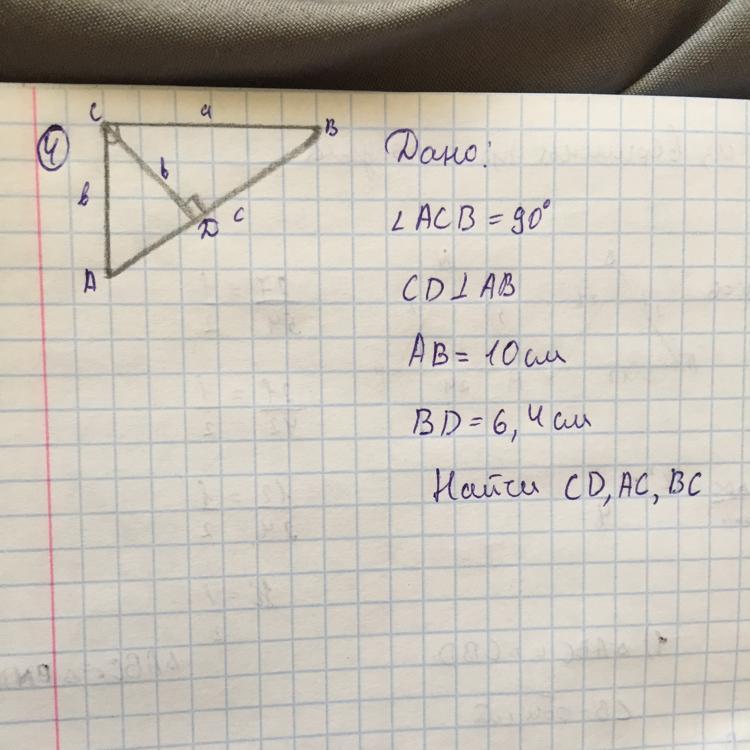 4
C a B
b b
D C
A
Дано:
∠ACB = 90°
CD⊥AB
AB = 10 см
BD = 6,4 см
Найти CD, AC, BC